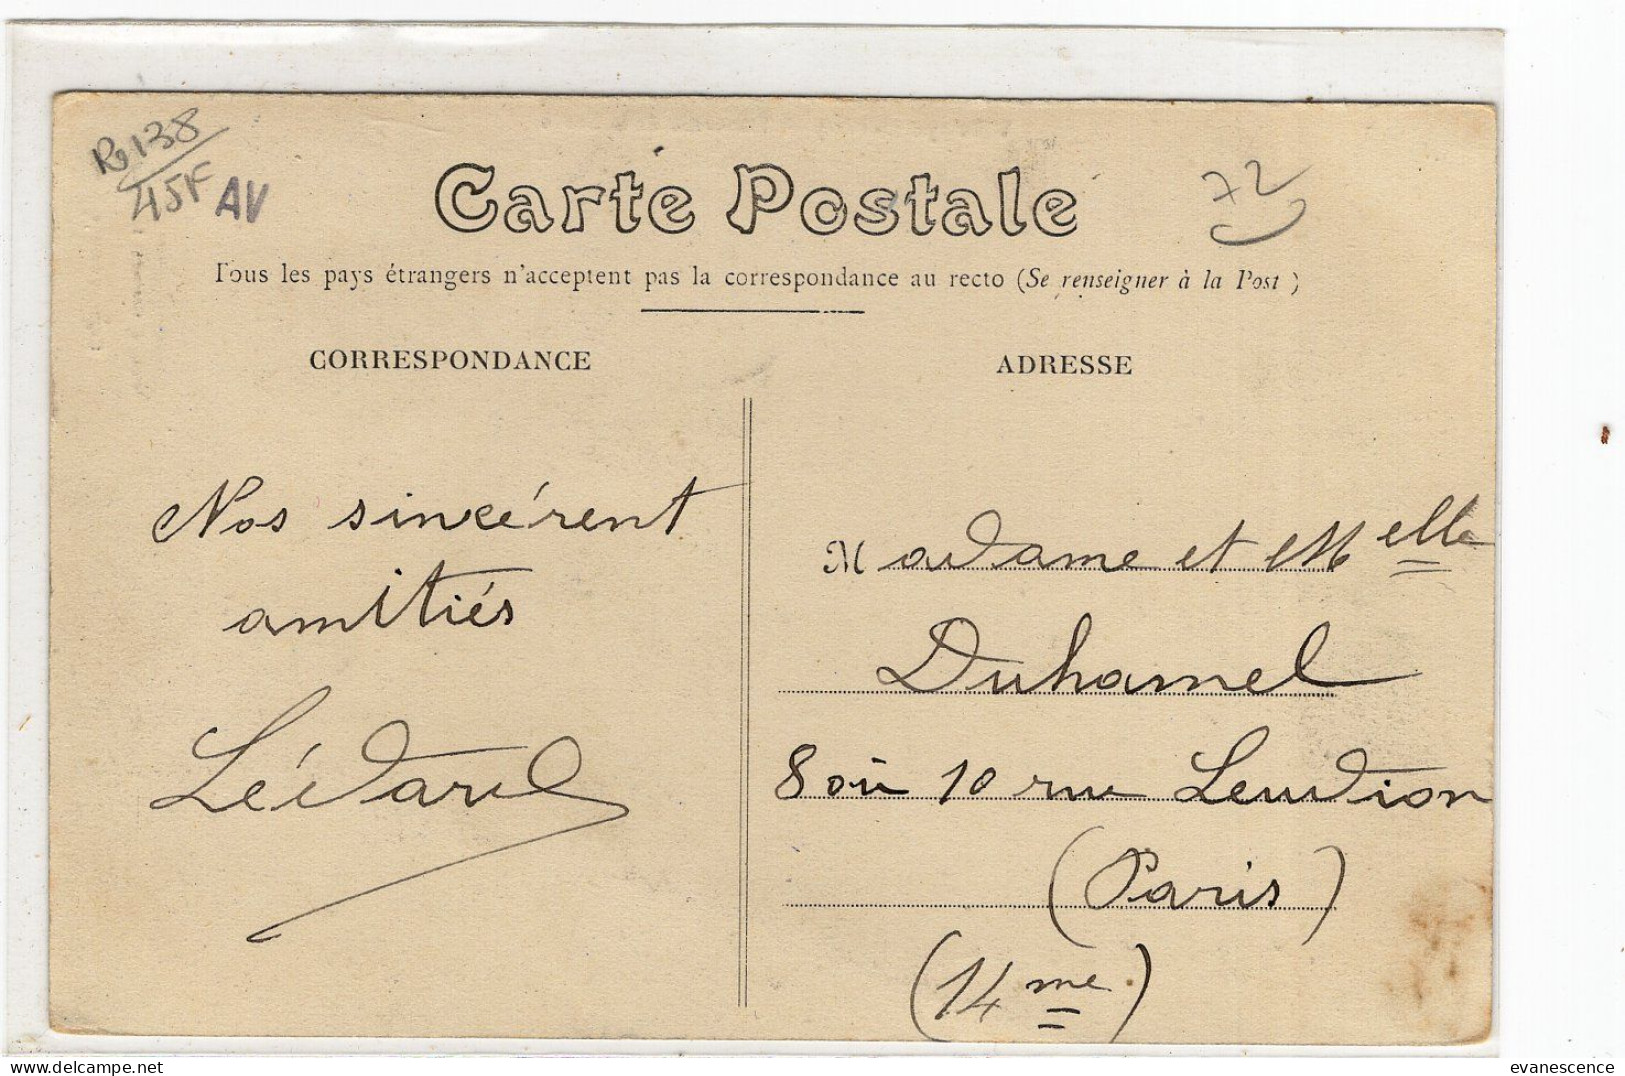 R 138
45F AV
72
Carte Postale
Tous les pays étrangers n'acceptent pas la correspondance au recto (Se renseigner à la Post )
CORRESPONDANCE
ADRESSE
Nos sincérent
amitiés
Madame et Melle
Duhamel
8 où 10 rue Leudion
(Paris)
(14me.)
evanescence